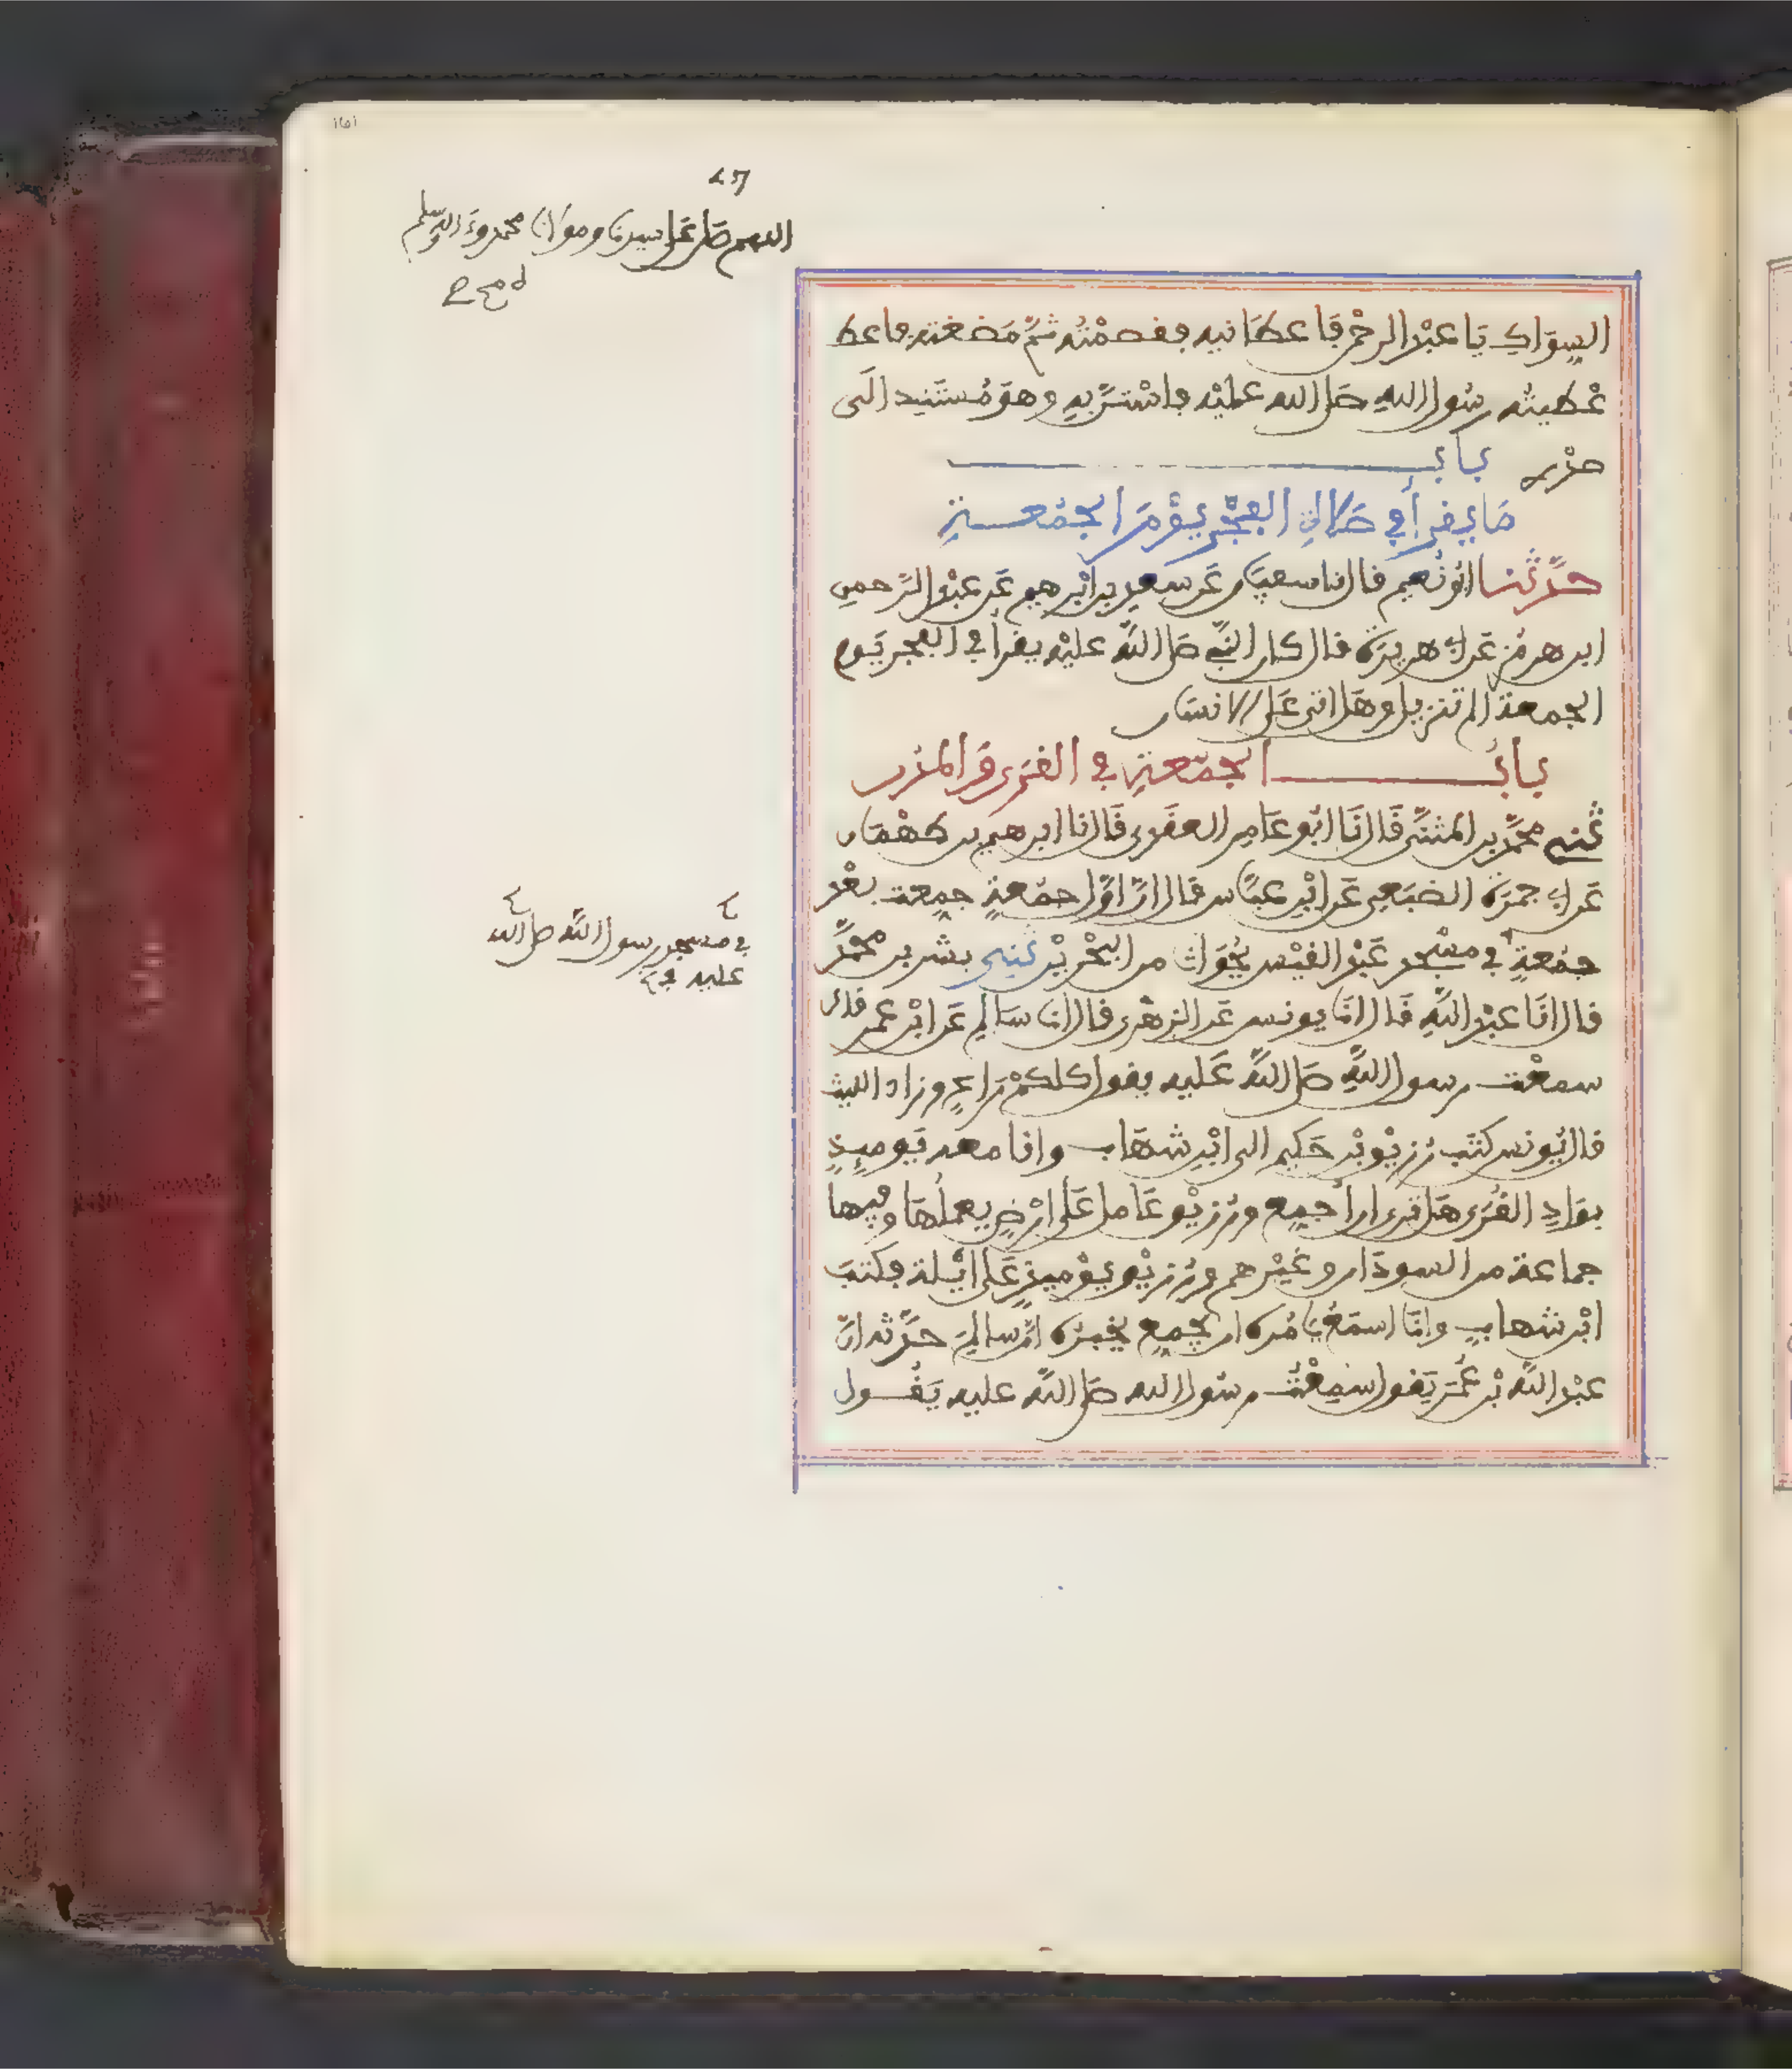 اللهم صل على سيدنا ومولانا محمد وءاله وسلم
السِوَاكِ يَا عبْد الرحْمن فَاعطَانيه ففصمْتُه ثمَّ مَضغته فاعط
عْطيتُه رسُول اللهِ صَلى الله عليْه فاسْتَنَّ بِهِ وهوَ مُسْتَنِد الَى
صدْرِي بَابُ
مَا يُقرأ فِي صَلاةِ الفجْرِ يوْمَ الجمُعَةِ
حدَّثنا ابُو نُعيم قال انا سفيَان عَن سعد بن ابْرهيم عَن عبْد الرَّحمن
ابن هرمُز عَن ابي هريرَة قال كان النبِّي صَلى اللَّه عليْه يقرأ في الفجر يَوم
الجمعة الم تنزيل وهَل اتى عَلى الانسَان
بَابُ الجمُعَةِ فِي القُرَى وَالمدُن
ثَنِي محمَّد بن المثنَّى قَال انَا ابُو عَامِر العقَدِي قَال انا ابرهيم بن طهْمَان
عَن ابي جمرَة الضبَعِي عَن ابْن عبَّاس قال ان اوَّل جمُعةٍ جمِعت بعْد
جمُعةٍ في مسْجد عَبْد القيْس بجُوَاثَ من البحْريْن ثنِي بشر بن محمَّد
في مسجد رسول اللَّه صلى الله
عليه
قال انَا عبْد اللَّهِ قَال انَا يونس عَن الزهْري قال انا سَالم عَن ابْن عمر قال
سمعْت رسول اللَّهِ صَلى اللَّه عَليه يقول كلكمْ رَاعٍ وزاد الليث
قال يُونس كتَب رُزيْق بْن حَكيم الى ابْن شهَاب وانا معه يَوميِذٍ
بوَادِ القُرَى هَل تَرى ان أجمِع ورُزيْق عَامل عَلى ارْضٍ يعملُهَا وفِيها
جماعة من السودَان وغيْرهم ورُزيْق يوْميذٍ عَلى ايْلة فكتبَ
ابْن شهابٍ وانَا اسمَعُ يَامُره ان يجمِّع يخبرُه انَّ سالمَ حدَّثه انَّ
عبْد اللَّه بْن عُمَرَ يَقول سَمِعْتُ رسُول الله صَلى اللَّه عليه يَقُول